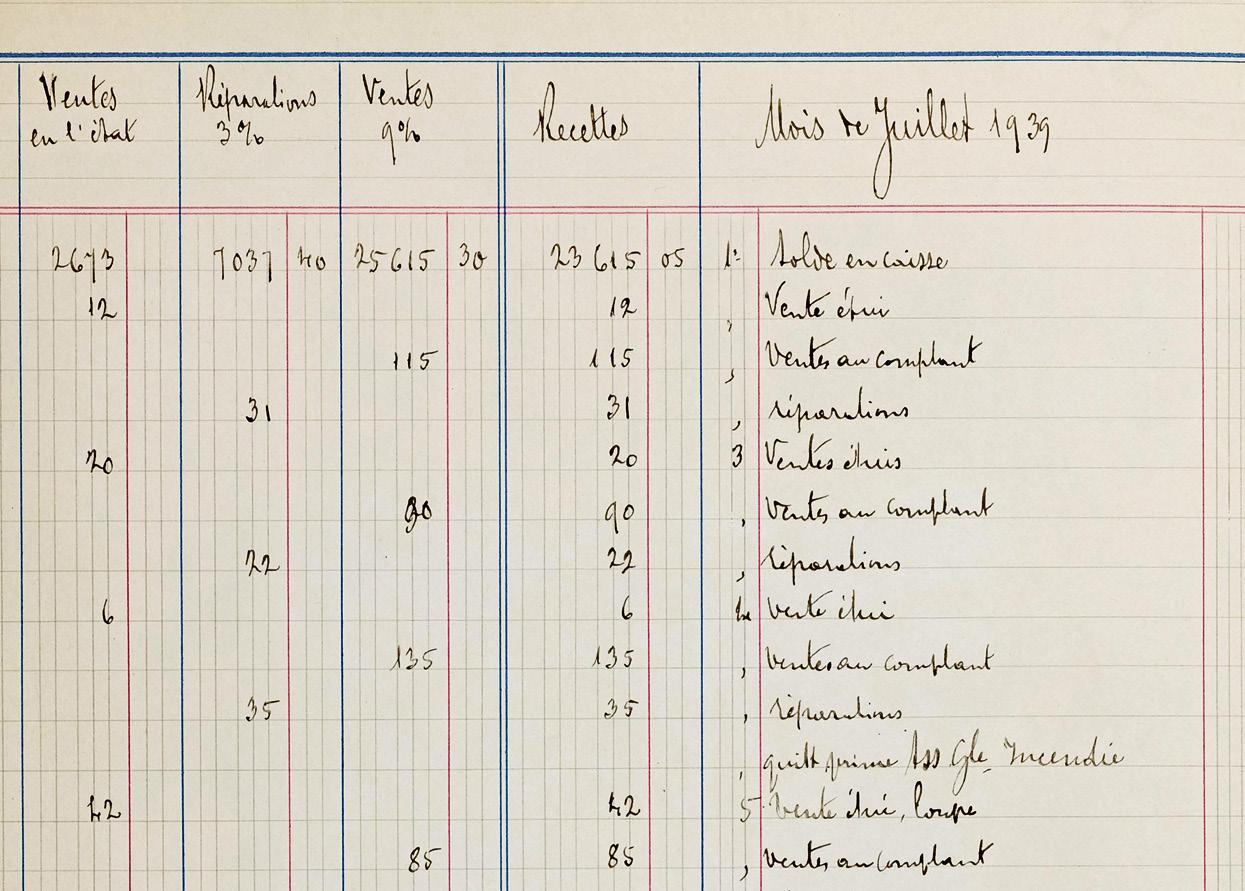 Ventes en l'état Réparations 3% Ventes 9% Recettes Mois de Juillet 1939
2673 7037 40 25615 30 23615 05 1er Solde en caisse
12 12 , Vente étui
115 115 , Ventes au comptant
31 31 , réparations
20 20 3 Ventes étuis
90 90 , Ventes au comptant
22 22 , réparations
6 6 4 Vente étui
135 135 , Ventes au comptant
35 35 , réparations
, quitt prime Ass Gle Incendie
42 42 5 Vente étui, loupe
85 85 , Ventes au comptant